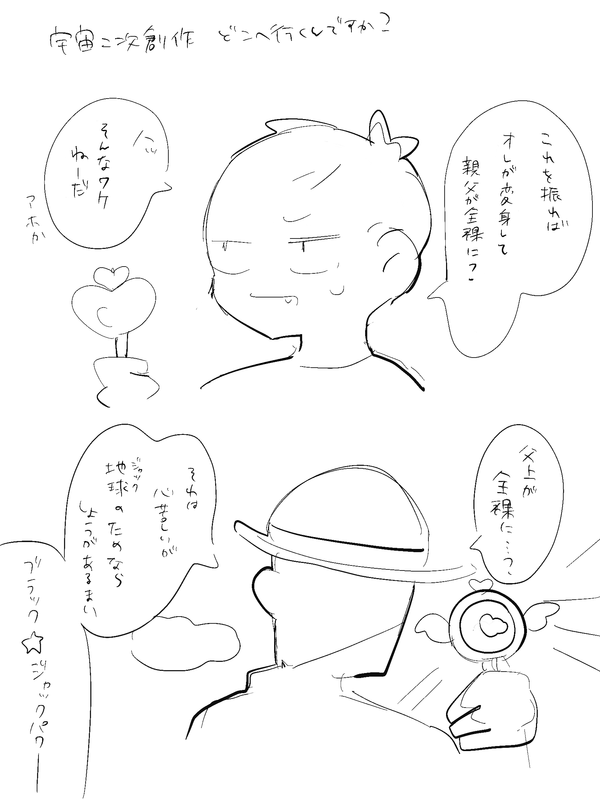 宇宙二次創作 どこへ行くんですか?
これを振れば
オレが変身して
親父が全裸に?
そんなワケ
ねーだ
アホか
父上が
全裸に…?
それは
心苦しいが
地球のためなら
ジャック
しょうがあるまい
ブラック☆ジャックパワー